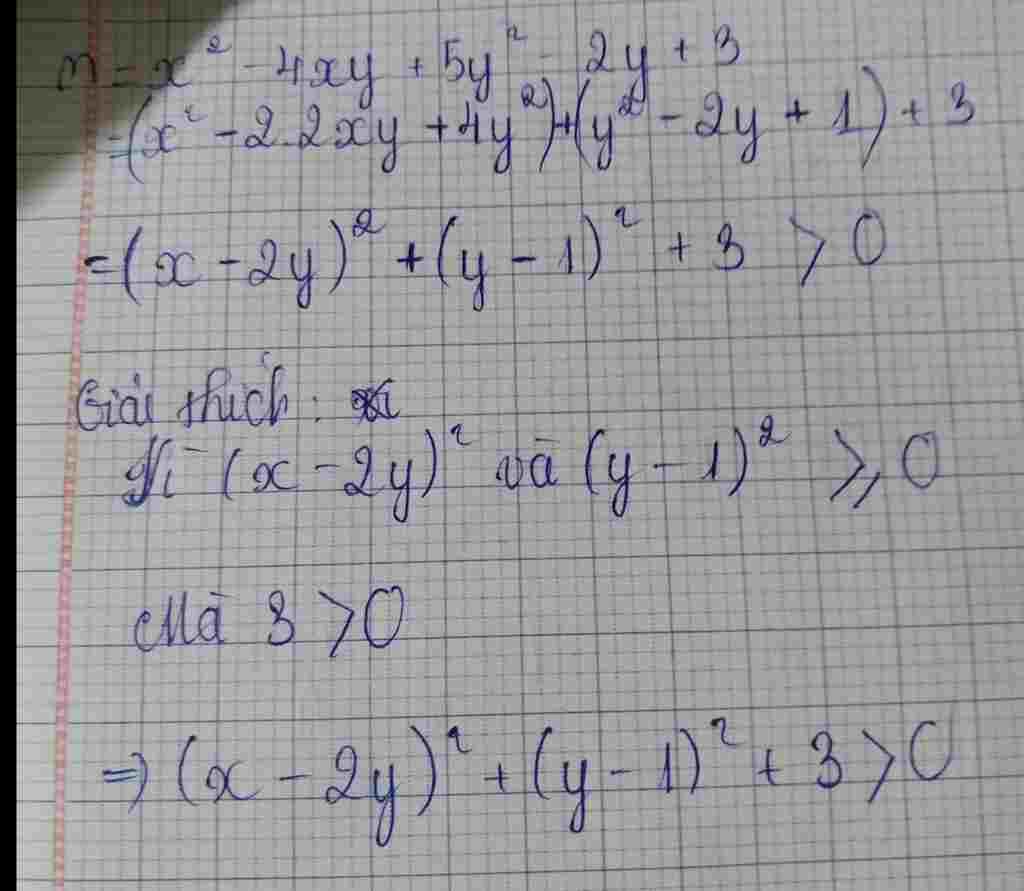 M = x² - 4xy + 5y² - 2y + 3
= (x² - 2.2xy + 4y²) + (y² - 2y + 1) + 3
= (x - 2y)² + (y - 1)² + 3 > 0
Giải thích :
Vì (x - 2y)² và (y - 1)² ⩾ 0
Mà 3 > 0
⇒ (x - 2y)² + (y - 1)² + 3 > 0